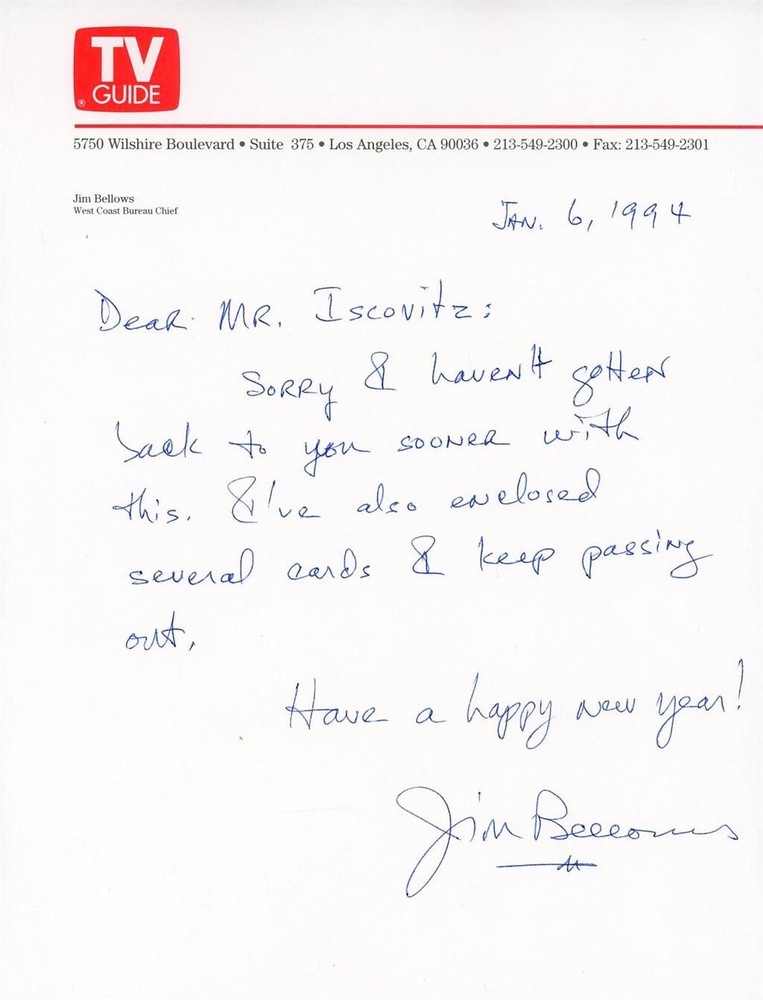 TV
GUIDE
®
5750 Wilshire Boulevard • Suite 375 • Los Angeles, CA 90036 • 213-549-2300 • Fax: 213-549-2301
Jim Bellows
West Coast Bureau Chief
JAN. 6, 1994
Dear MR. Iscovitz:
Sorry I haven't gotten
back to you sooner with
this. I've also enclosed
several cards I keep passing
out.
Have a happy new year!
Jim Bellows